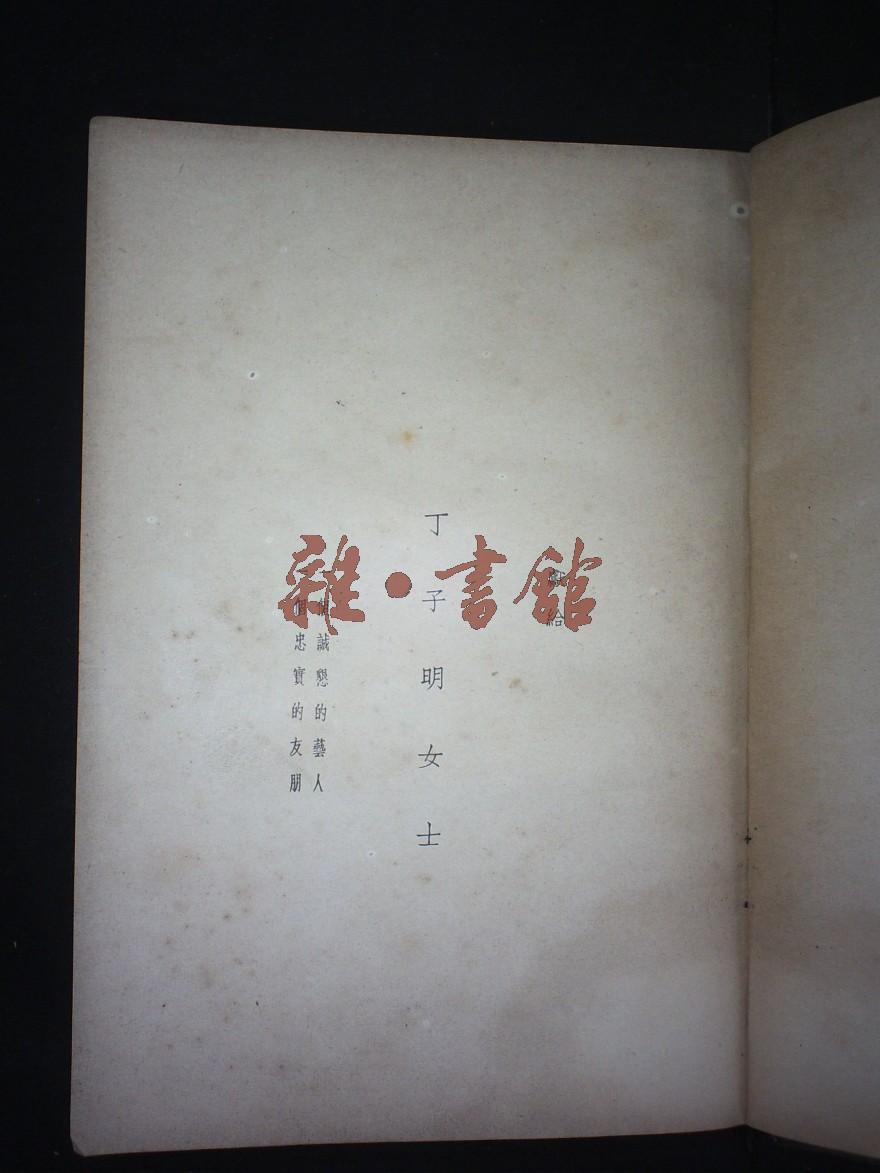 獻給
丁子明女士
一個誠懇的藝人
一個忠實的友朋
雜·書館